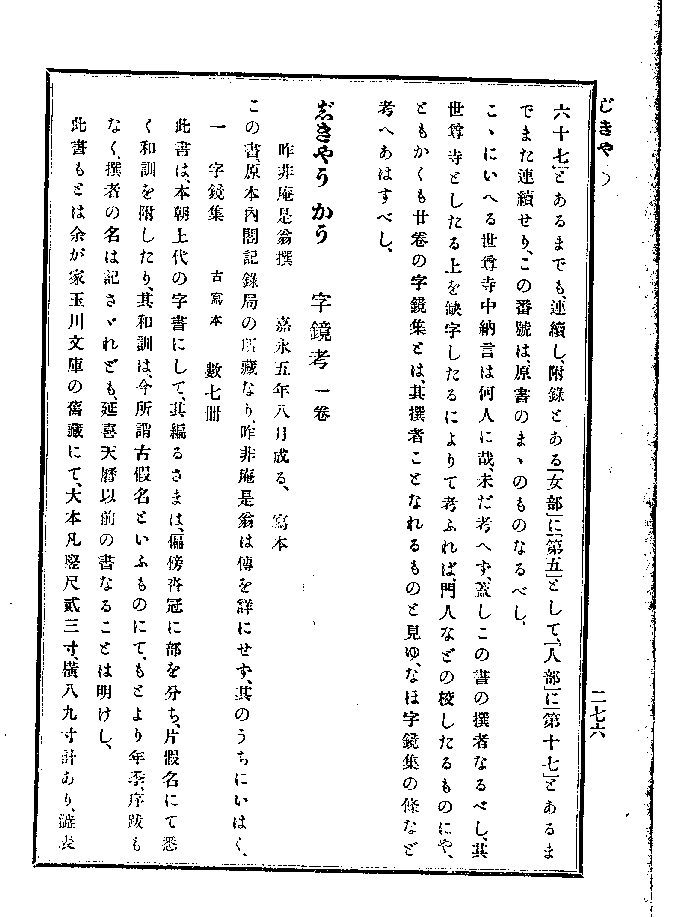 じきや
二七六
六十七」とあるまでも、連續し、附錄とある「女部」に「第五」として、「人部」に「第十七」とあるま
でまた連續せり、この番號は、原書のまゝのものなるべし、
こゝにいへる世尊寺中納言は何人に哉、未だ考へず、蓋しこの書の撰者なるべし、其
世尊寺としたる上を缺字したるによりて考ふれば、門人などの校したるものにや、
ともかくも廿卷の字鏡集とは、其撰者ことなれるものと見ゆ、なほ字鏡集の條など
考へあはすべし、
じきやうかう 字鏡考 一卷
昨非庵是翁撰 嘉永五年八月成る、 寫本
この書、原本內閣記錄局の所藏なり、昨非庵是翁は傳を詳にせず、其のうちにいはく、
一 字鏡集 古寫本 數七冊
此書は、本朝上代の字書にして、其編るさまは、偏傍沓冠に部を分ち、片假名にて悉
く和訓を附したり、其和訓は、今所謂古假名といふものにて、もとより年季、序跋も
なく、撰者の名は記さゞれども、延喜天曆以前の書なることは明けし、
此書もとは余が家玉川文庫の舊藏にて、大本凡竪尺貳三寸、橫八九寸計あり、澁表